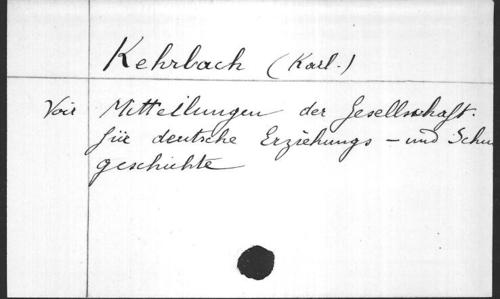 Kehrbach (Karl.)
Voir Mitteilungen der Gesellschaft.
für deutsche Erziehungs - und Schul
geschichte